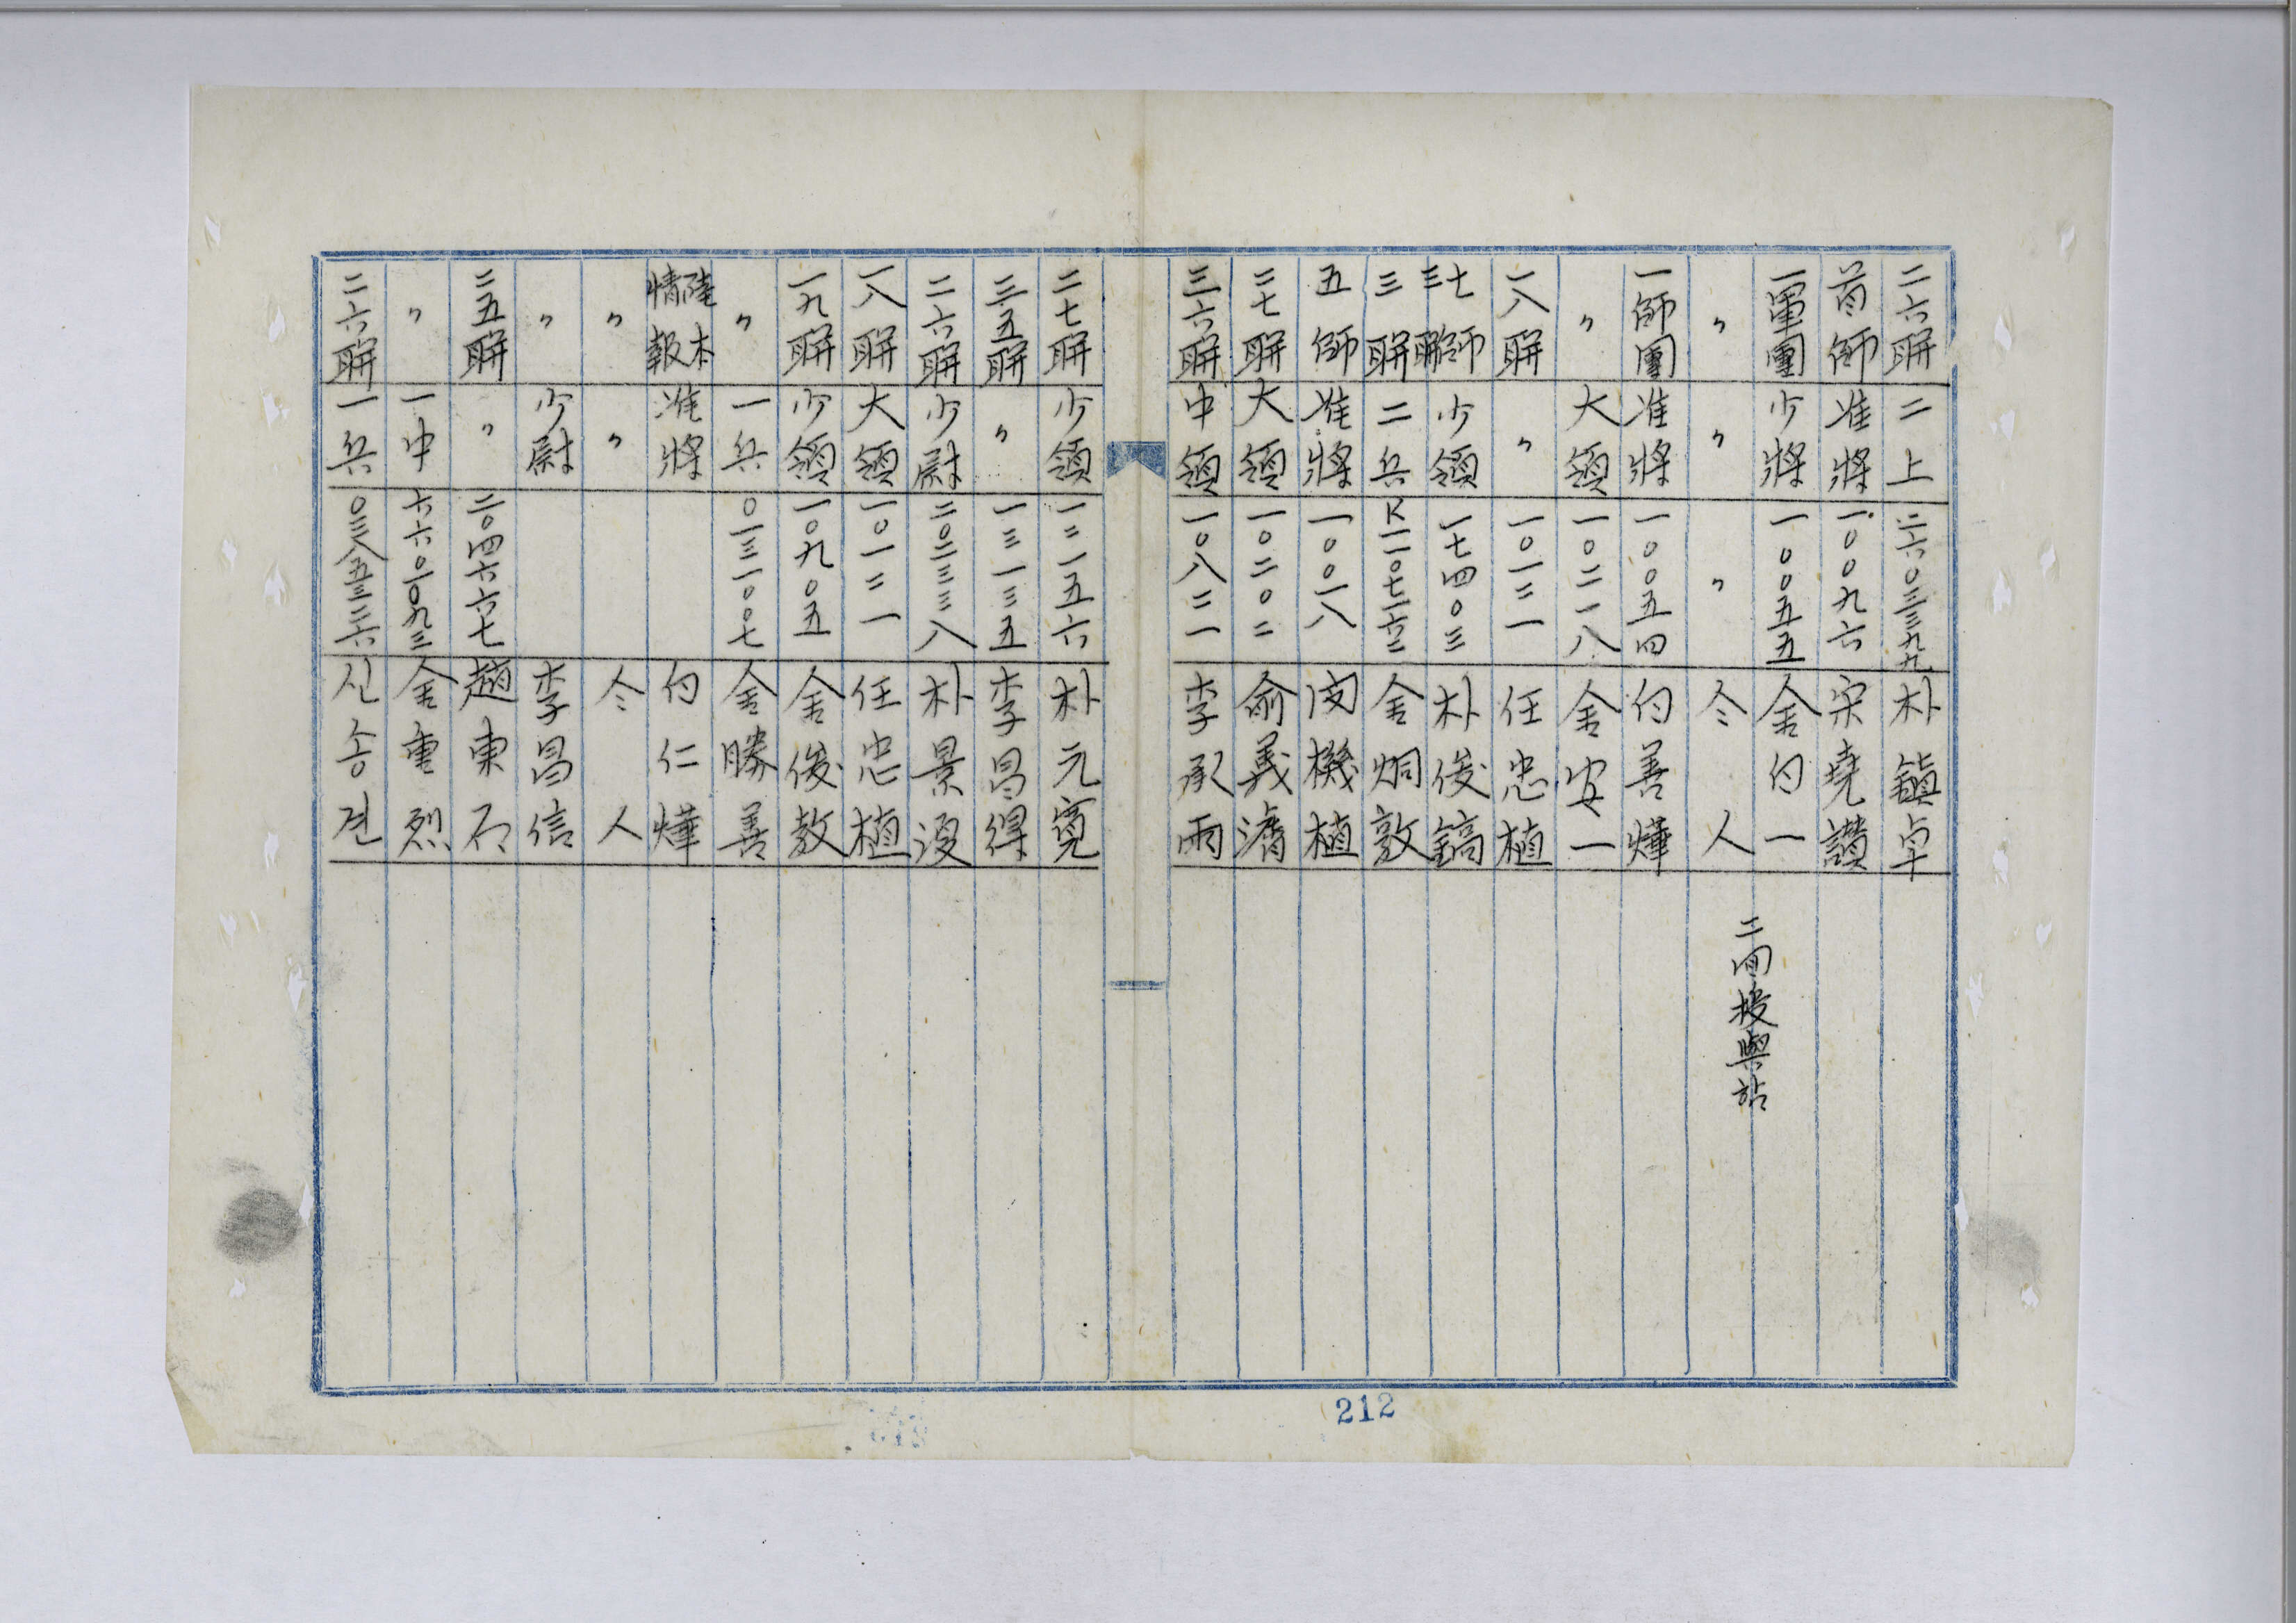 二六聯 二上 二六〇三三九九 朴鎭卓
首師 准將 一〇〇九六 宋堯讚
一軍團 少將 一〇〇五五 金白一
〃 〃 〃 仝人 二回授與詁
一師團 准將 一〇〇五四 白善燁
〃 大領 一〇二一八 金安一
一八聯 〃 一〇一三一 任忠植
七師三聯 少領 一七四〇三 朴俊鎬
三聯 二兵 K一一〇七一六二 金炯敦
五師 准將 一〇〇一八 閔機植
二七聯 大領 一〇二〇二 兪義濬
三六聯 中領 一〇八二一 李承雨
二七聯 少領 一二一五六 朴元寬
三五聯 〃 一三一三五 李昌得
二六聯 少尉 二〇二三三八 朴景浚
一八聯 大領 一〇一三一 任忠植
一九聯 少領 一〇九〇五 金俊敎
〃 一兵 〇一三一〇〇七 金勝善
陸本情報 准將 白仁燁
〃 〃 仝人
〃 少尉 李昌信
二五聯 〃 二〇四六六七 趙東石
〃 一中 六六〇一〇九三 金重烈
二六聯 一兵 신송견
212